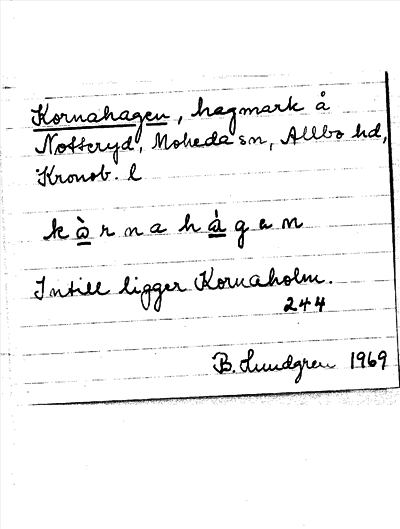 Kornahagen, hagmark å
Notteryd, Moheda sn, Allbo hd,
Kronob. l
k à r n a h à g e n
Intill ligger Kornaholm.
244
B. Lundgren 1969